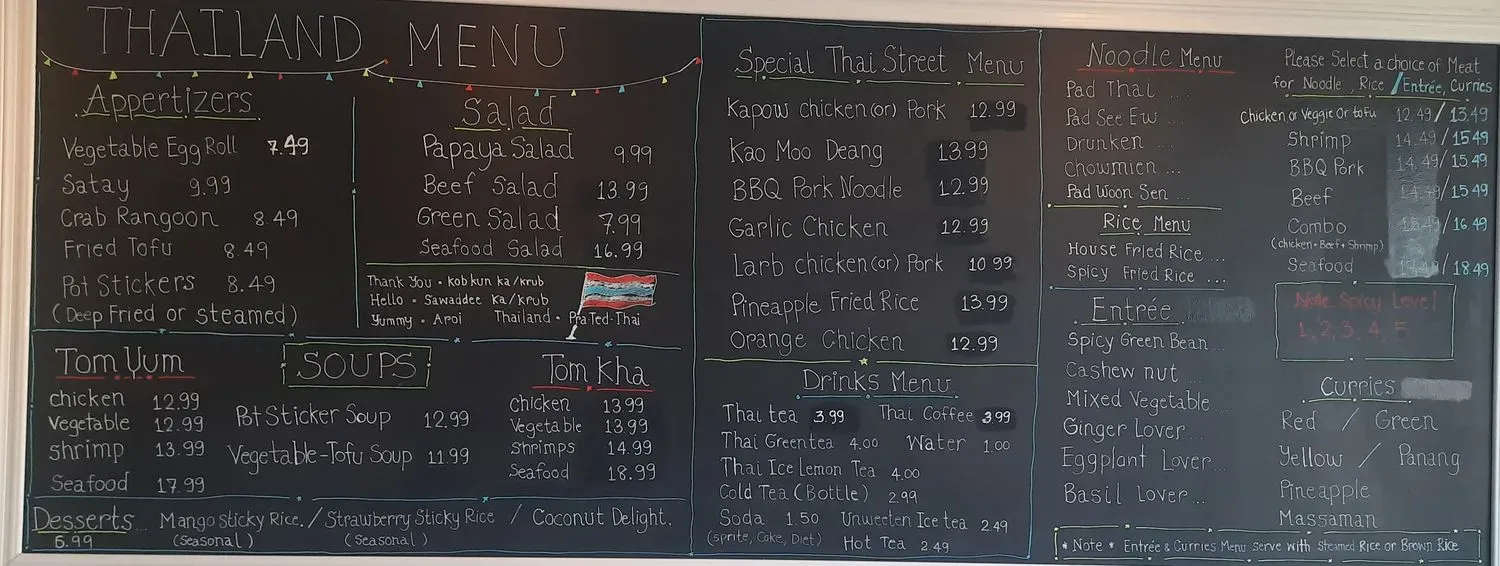 THAILAND MENU
Appertizers
Vegetable Egg Roll 7.49
Satay 9.99
Crab Rangoon 8.49
Fried Tofu 8.49
Pot Stickers 8.49
(Deep Fried or steamed)
Salad
Papaya Salad 9.99
Beef Salad 13.99
Green Salad 7.99
Seafood Salad 16.99
Thank You • kob kun ka/krub
Hello • Sawaddee ka/krub
Yummy • Aroi Thailand • Pra-Ted-Thai
Tom Yum
chicken 12.99
Vegetable 12.99
shrimp 13.99
Seafood 17.99
SOUPS
Pot Sticker Soup 12.99
Vegetable-Tofu Soup 11.99
Tom Kha
Chicken 13.99
Vegetable 13.99
Shrimps 14.99
Seafood 18.99
Desserts... Mango Sticky Rice. / Strawberry Sticky Rice / Coconut Delight.
6.99 (Seasonal) (Seasonal)
Special Thai Street Menu
Kapow chicken (or) Pork 12.99
Kao Moo Deang 13.99
BBQ Pork Noodle 12.99
Garlic Chicken 12.99
Larb chicken (or) Pork 10.99
Pineapple Fried Rice 13.99
Orange Chicken 12.99
Drinks Menu
Thai tea 3.99 Thai Coffee 3.99
Thai Greentea 4.00 Water 1.00
Thai Ice Lemon Tea 4.00
Cold Tea (Bottle) 2.99
Soda 1.50 Unweeten Ice tea 2.49
(sprite, Coke, Diet) Hot Tea 2.49
Noodle Menu
Pad Thai ...
Pad See Ew ...
Drunken ...
Chowmien ...
Pad Woon Sen ...
Rice Menu
House Fried Rice ...
Spicy Fried Rice ...
Entrée
Spicy Green Bean...
Cashew nut ...
Mixed Vegetable...
Ginger Lover...
Eggplant Lover...
Basil Lover...
Please Select a choice of Meat
for Noodle, Rice / Entrée, Curries
chicken or Veggie Or tofu 12.49/13.49
Shrimp 14.49/15.49
BBQ Pork 14.49/15.49
Beef 14.49/15.49
Combo 15.49/16.49
(chicken • Beef • Shrimp)
Seafood 17.49/18.49
Note Spicy Level
1, 2, 3, 4, 5
Curries
Red / Green
Yellow / Panang
Pineapple
Massaman
* Note * Entrée & Curries Menu serve with Steamed Rice or Brown Rice